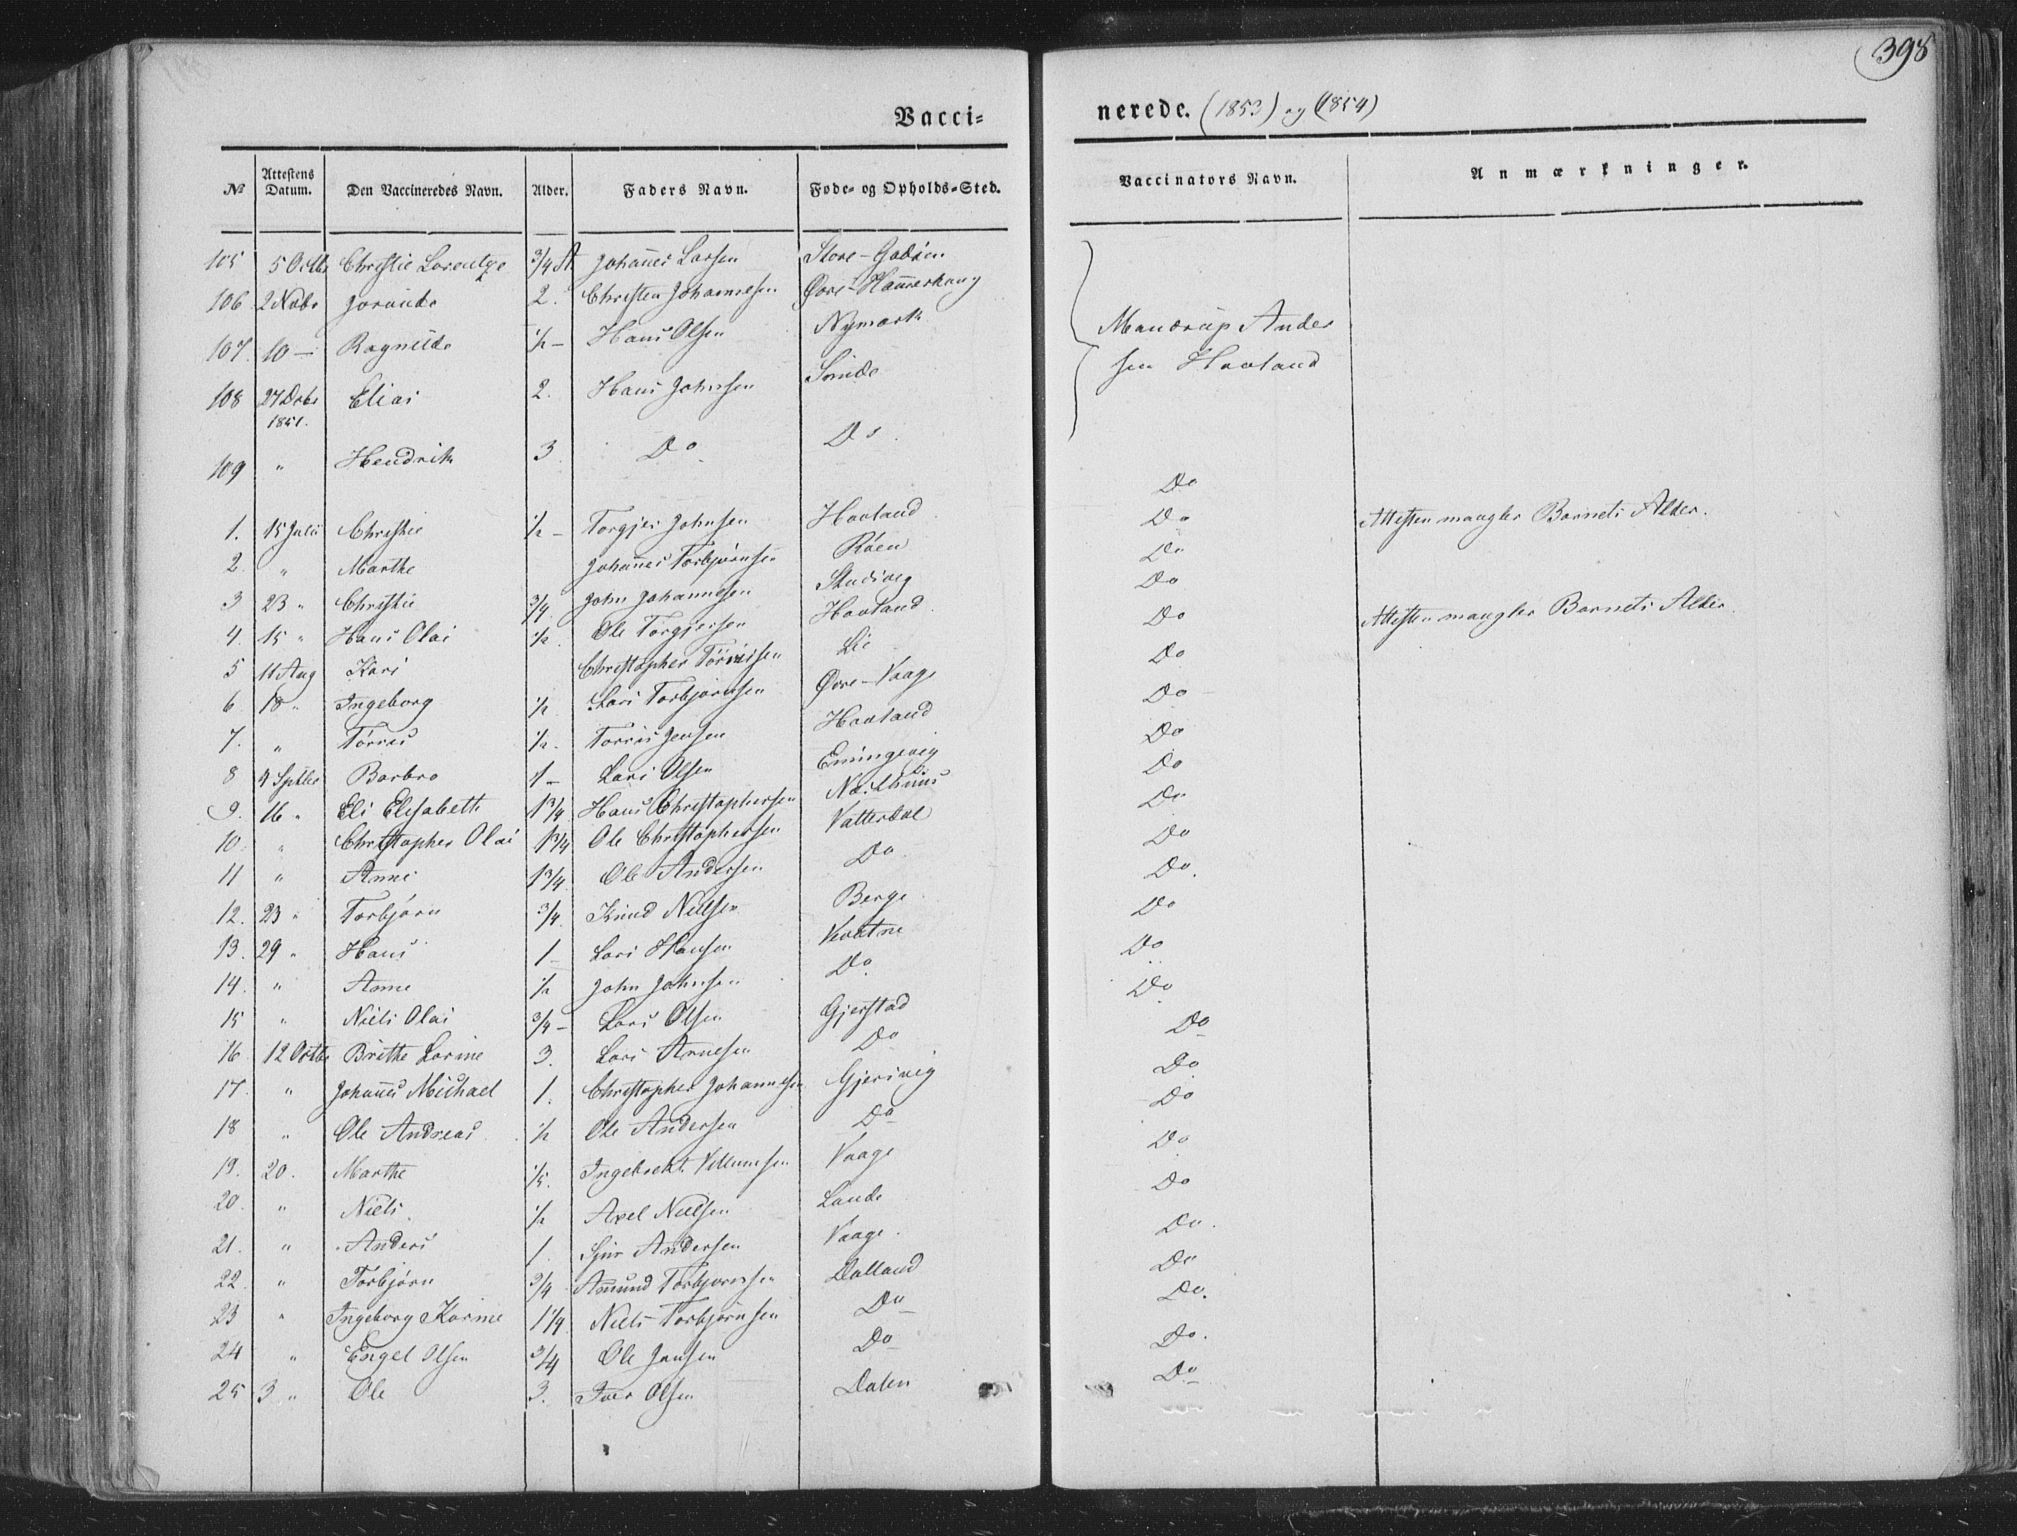 398
Vacci-
nerede. (1853) og (1854)
№ Attestens Datum. Den Vaccineredes Navn. Alder. Faders Navn. Føde- og Opholds-Sted. Vaccinators Navn. Anmærkninger.
105 5 Octbr Christie Lorentze 3/4 A Johannes Larsen Store-Godøen
106 2 Novbr Jorunde 2. Christen Johannesen Øvre-Hammerhoug
107. 10 — Ragnilde 1/2 — Hans Olsen Nymark Mandrup Ander
108 27 Decbr 1851. Elias 2. Hans Johnsen sen Hovland
109 " Hendrik 3 Do Do.
Do
1. 15 Juli Christie 1/2 — Torgjer Johnsen Hovland. Do
2. " Marthe Johannes Torbjørnsen Røen Do Attesten mangler Barnets Alder.
3 23 " Christie 3/4 John Johannesen Do
4. 15 " Hans Olai 1/2. Ole Torgjersen Hovland. Do
5 11 Aug Kari Christopher Tørrisen Lie Do Attesten mangler Barnets Alder.
6. 18 " Ingeborg 1/2 Lars Torbjørnsen Øvre-Vaage Do
7. " Tørres 1/2. Torris Jensen Hovland Do
8 4 Septbr Barbro 1 — Lars Olsen Do
9. 16 " Eli Elisabeth 1 3/4 Hans Christophersen Do
10. " Christopher Olai 1 3/4 Ole Christophersen Vatterdal Do
11 " Anne 1 3/4. Ole Andersen Do. Do
12. 23 " Torbjørn 3/4. Knud Nielsen Berge. Do.
13. 29 " Hans 1 — Lars Hansen Do
14. " Anne 1/2 John Johnsen Do Do
15 " Niels Olai 3/4 — Lars Olsen Gjerstad Do
16. 12 Octbr Brithe Larine 3. Lars Arnesen Do Do
17. " Johannes Michael 1. Christopher Johannesen Gjersvig Do
18 " Ole Andreas 1/2 Ole Andersen Do Do
19. 20. Marthe Ingebrekt Villumsen Vaage Do
20. " Niels 1/2 Axel Nielsen Lande Do
21. " Anders 1. Sjur Andersen Vaage. Do.
22. " Torbjørn 3/4 Amund Torbjørnsen Dalland Do
23 " Ingeborg Karine 1 1/4 Niels Torbjørnsen Do Do.
24 " Engel Olsen 3/4 Ole Jansen Do Do.
25 3 " Ole 3. Iver Olsen Dalen Do